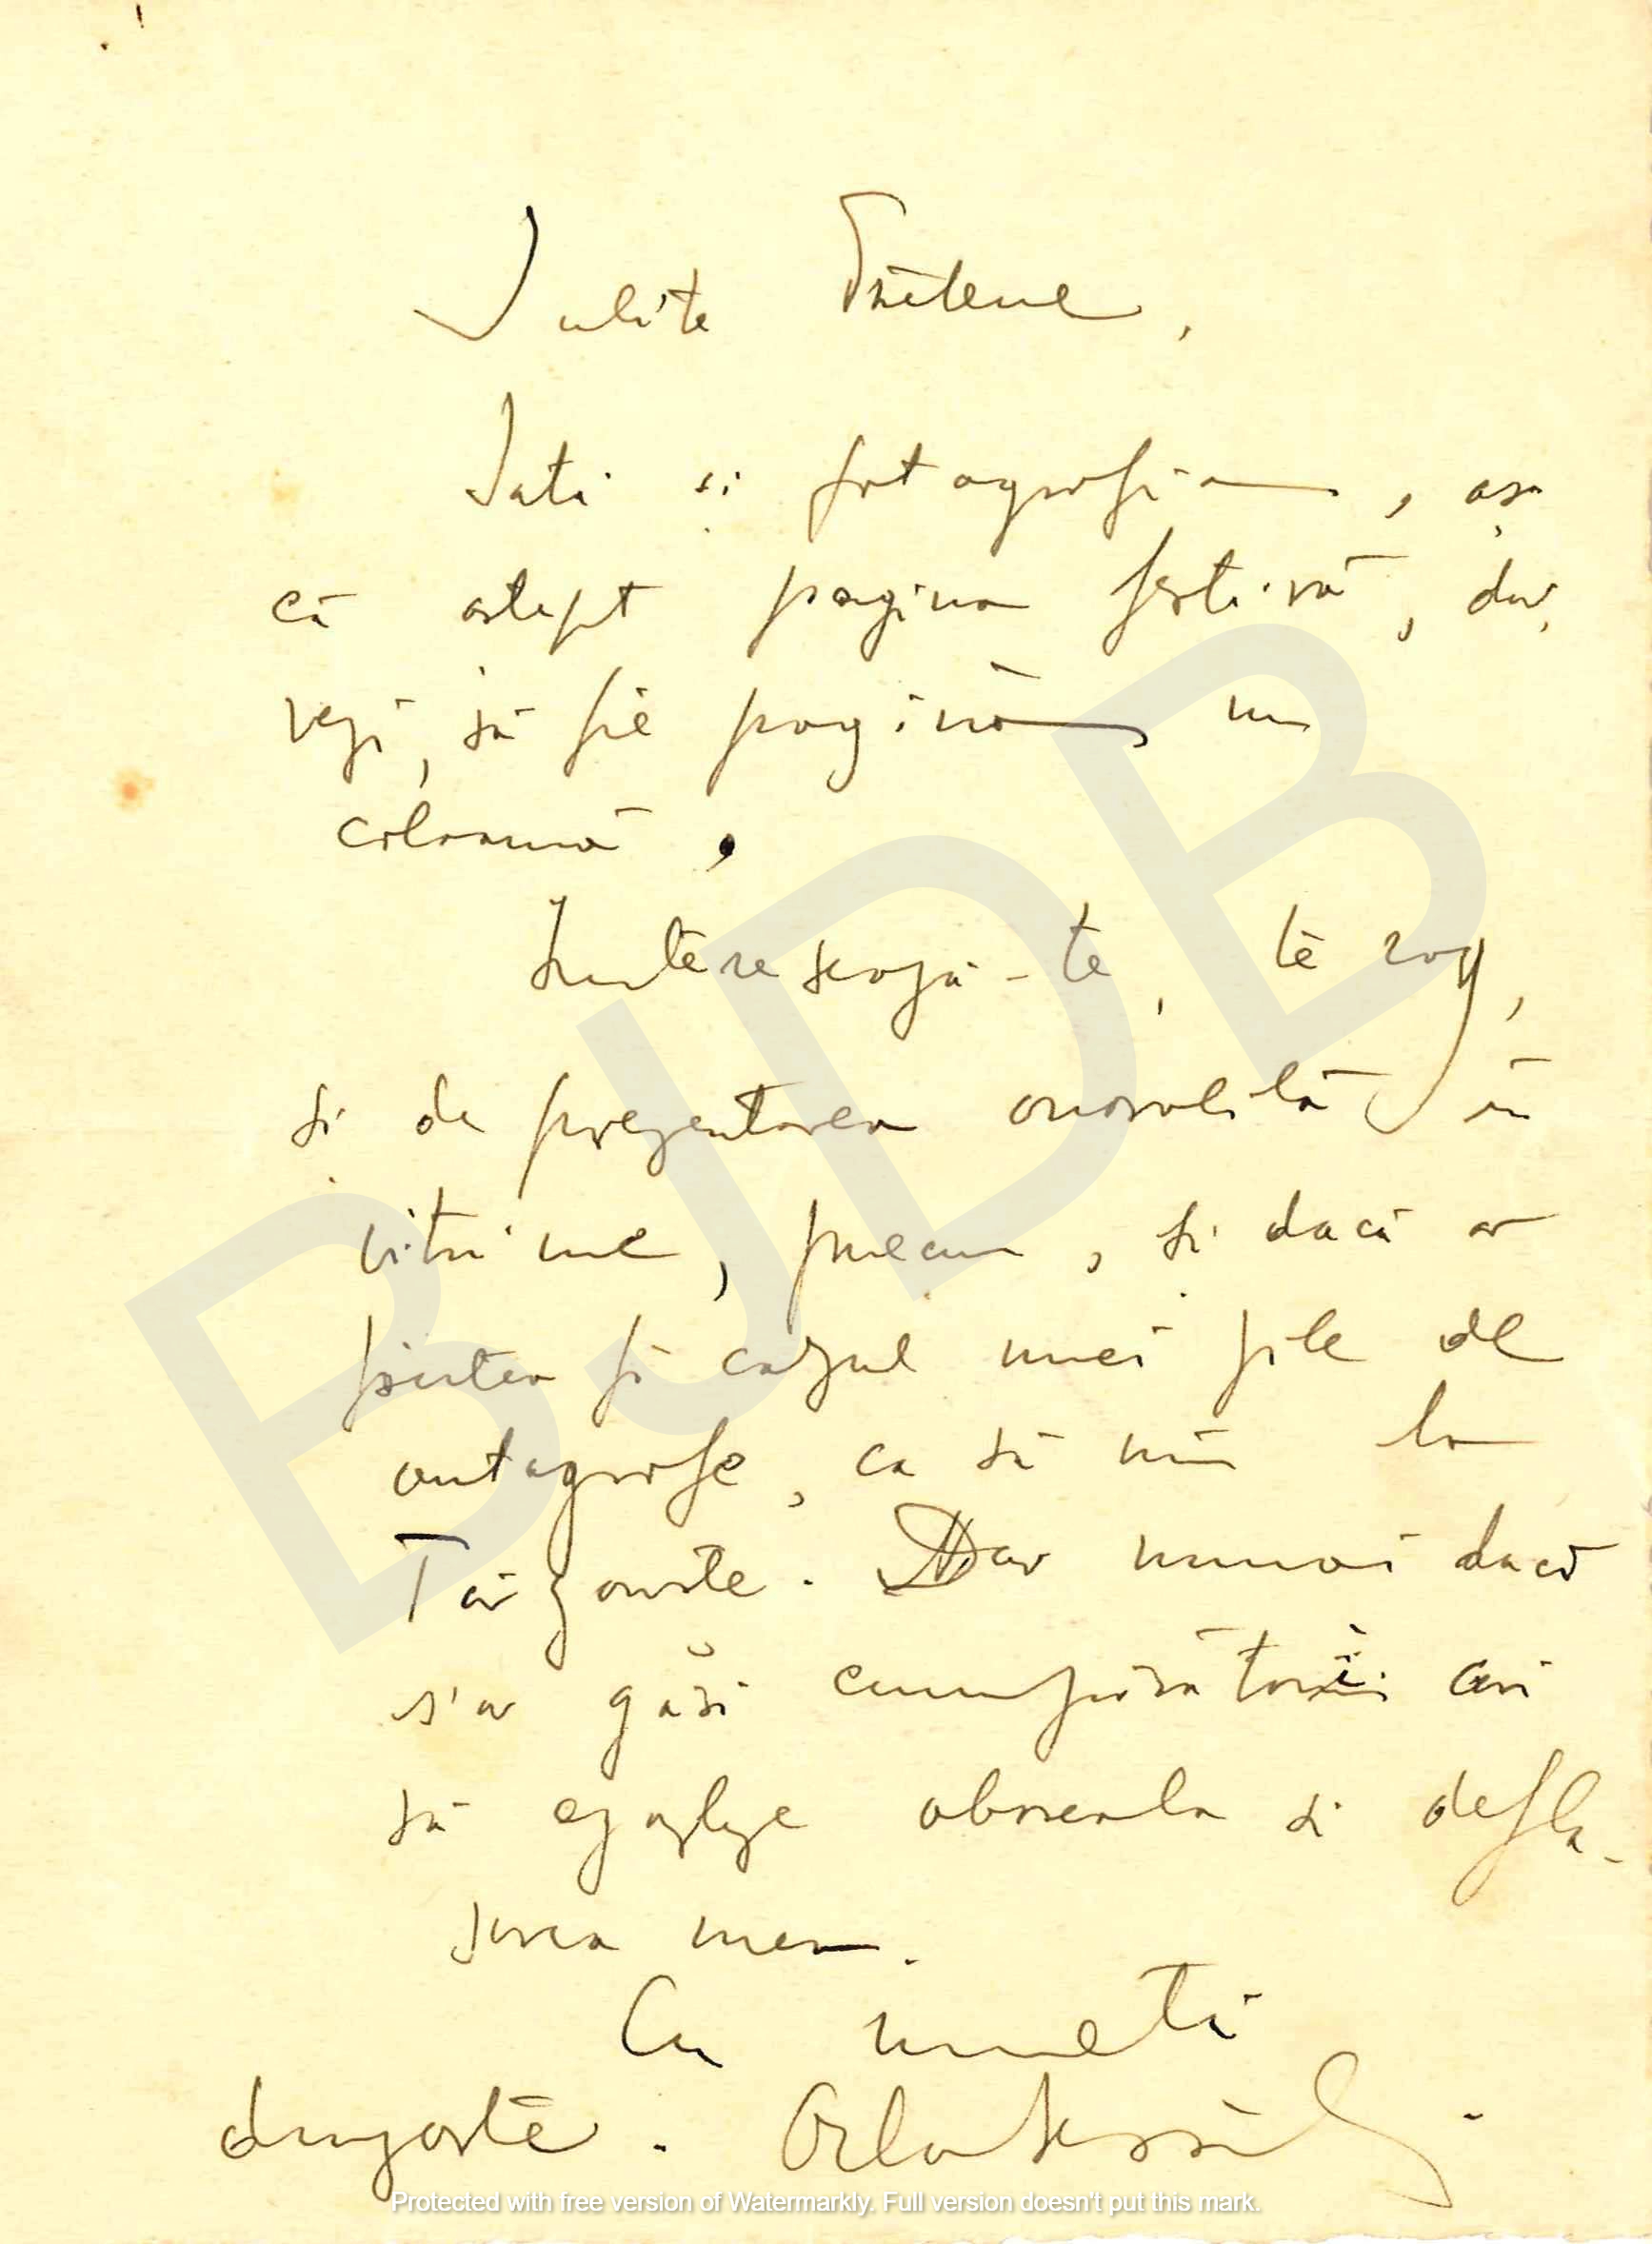 Iubite Prietene,
Iată și fotografia, așa
că aștept pagina festivă, dar,
vezi, să fie pagină nu
coloană.
Interesează-te, te rog,
și de prezentarea onorabilă în
vitrine, precum, și dacă ar
putea fi cazul unei zile de
autografe, ca să viu la
Târgoviște. Dar numai dacă
s'ar găsi cumpărători cari
să egaleze oboseala și depla-
sarea mea.
Cu multă
dragoste.
BJDB
Protected with free version of Watermarkly. Full version doesn't put this mark.